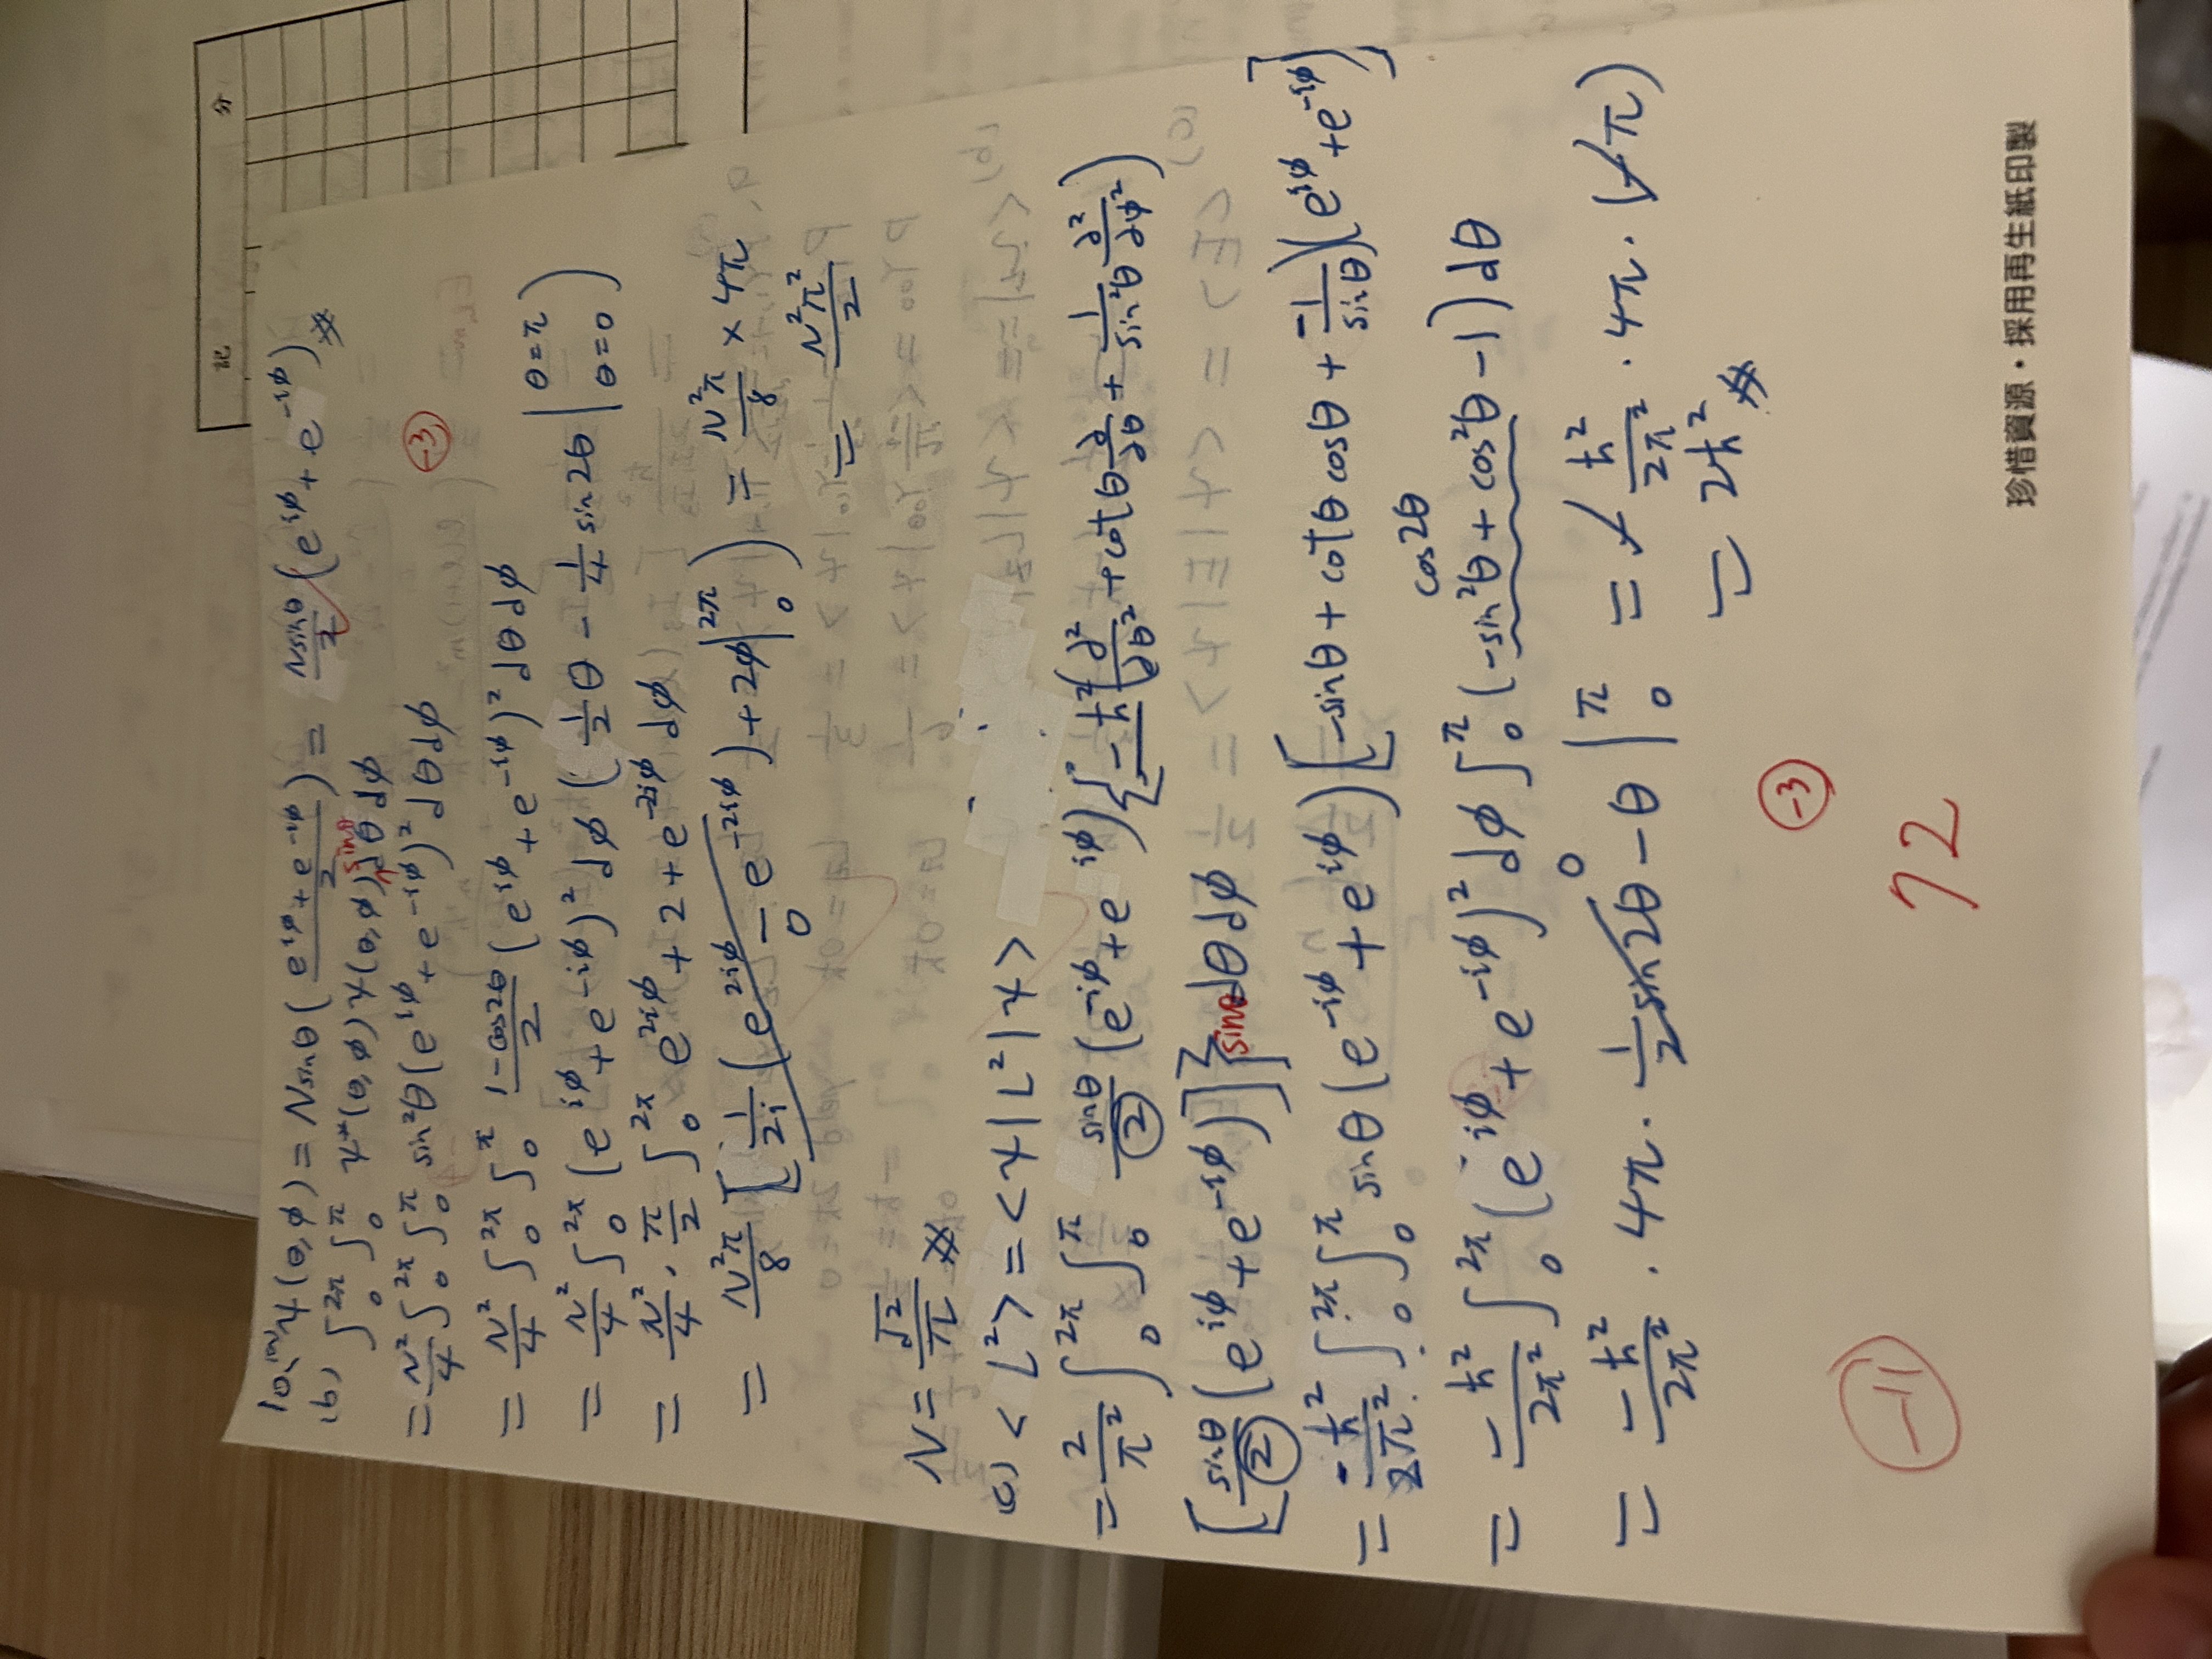 記 分
10. (a) ψ(θ,φ) = N sinθ ( (e^{iφ} + e^{-iφ})/2 ) = (N sinθ)/2 (e^{iφ} + e^{-iφ}) ※
(b) ∫_0^{2π} ∫_0^π ψ*(θ,φ) ψ(θ,φ) sinθ dθ dφ
= N²/4 ∫_0^{2π} ∫_0^π sin²θ (e^{iφ} + e^{-iφ})² dθ dφ
-3
= N²/4 ∫_0^{2π} ∫_0^π (1-cos2θ)/2 (e^{iφ} + e^{-iφ})² dθ dφ
= N²/4 ∫_0^{2π} (e^{iφ} + e^{-iφ})² dφ ( 1/2 θ - 1/4 sin2θ |_{θ=0}^{θ=π} )
= N²/4 · π/2 ∫_0^{2π} e^{2iφ} + 2 + e^{-2iφ} dφ
= N²π/8 [ 1/2i (e^{2iφ} - e^{-2iφ}) 0 + 2φ |_0^{2π} ) = N²π/8 × 4π
= N²π²/2
N = √2/π ※
(c) <L²> = <ψ|L²|ψ>
= 2/π² ∫_0^{2π} ∫_0^π sinθ/2 (e^{-iφ} + e^{iφ}) { -ħ² ( ∂²/∂θ² + cotθ ∂/∂θ + 1/sin²θ ∂²/∂φ² )
[ sinθ/2 (e^{iφ} + e^{-iφ}) ] } sinθ dθ dφ
= -ħ²/2π² ∫_0^{2π} ∫_0^π sinθ (e^{-iφ} + e^{iφ}) [ -sinθ + cotθ cosθ + -1/sinθ )( e^{iφ} + e^{-iφ} ]
cos2θ
= -ħ²/2π² ∫_0^{2π} (e^{iφ} + e^{-iφ})² dφ ∫_0^π (-sin²θ + cos²θ - 1) dθ
= -ħ²/2π² · 4π · 1/2 sin2θ 0 - θ |_0^π = - ħ²/2π² · 4π · (-π)
= 2ħ² ※
-3
-11
72
珍惜資源・採用再生紙印製